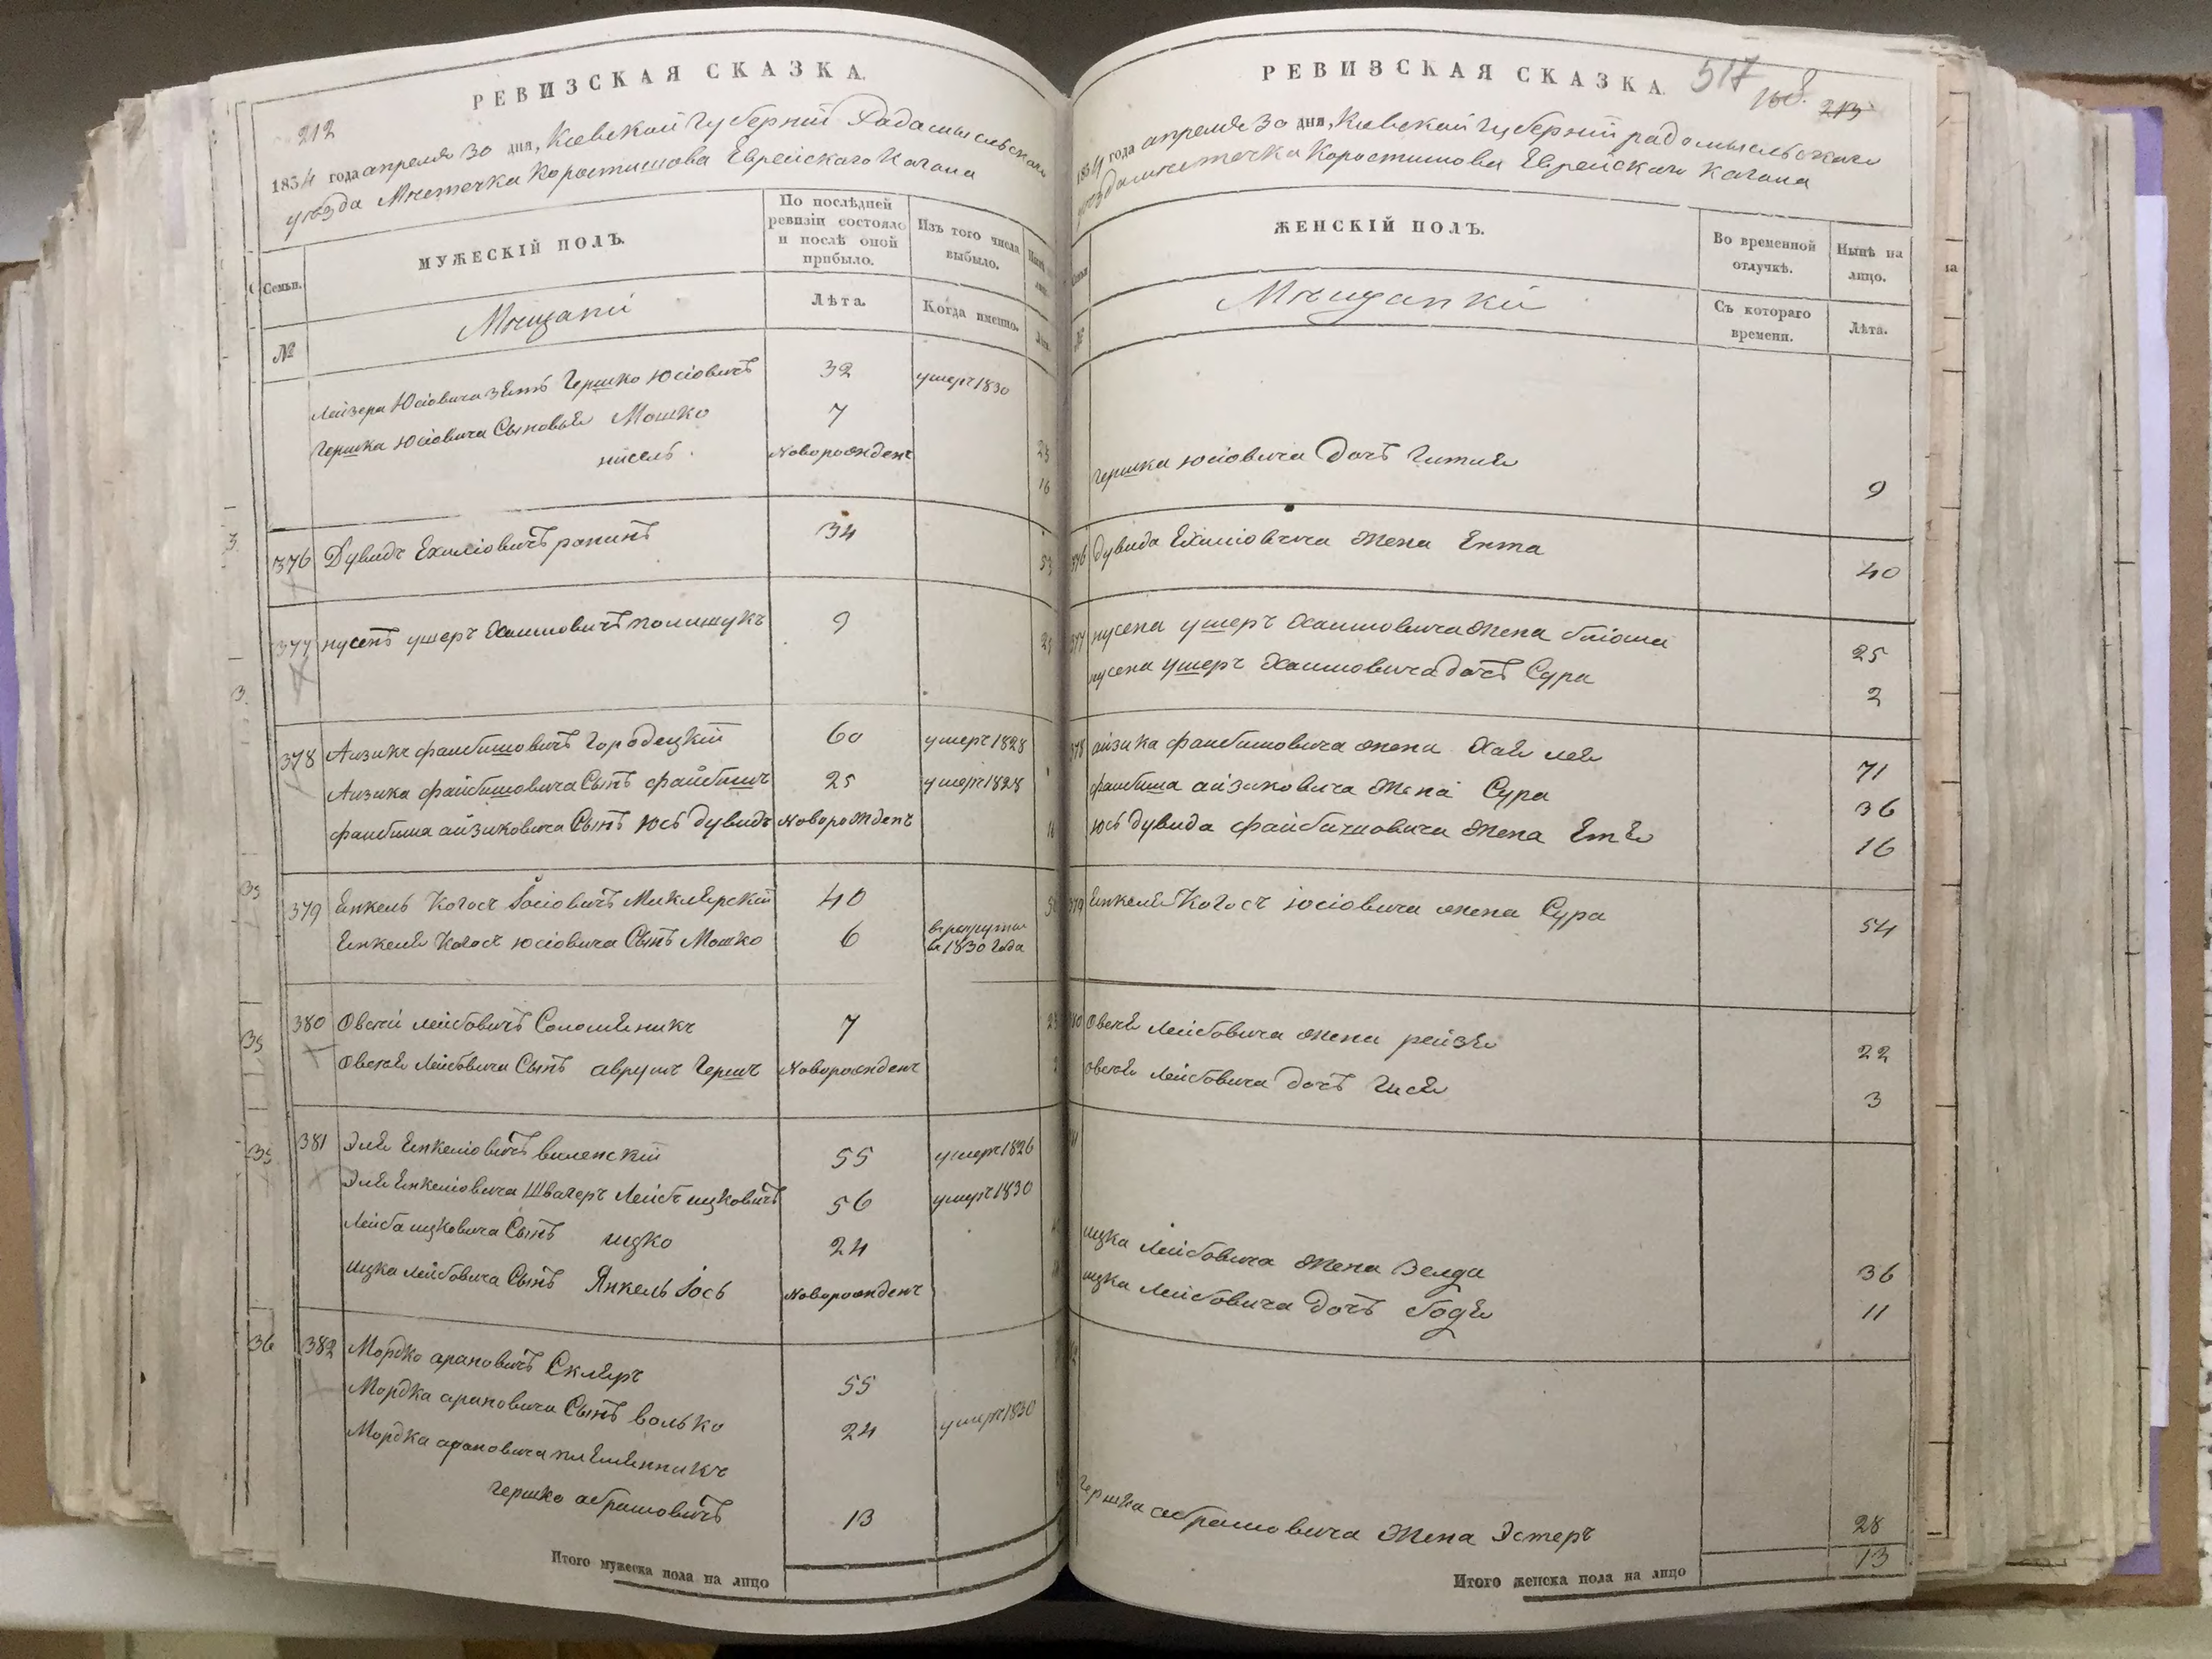 РЕВИЗСКАЯ СКАЗКА.
212
1834 года апреля 30 дня, Киевской Губернiи Радомысльского
уезда Местечка Коростишова Еврейского Кагала
Семьи.
МУЖЕСКIЙ ПОЛЪ.
По послѣдней ревизiи состояло и послѣ оной прибыло.
Изъ того числа выбыло.
№
Мещани
Лѣта.
Когда именно.
Лейзера Юсiовича зять Гершко Юсiовичъ 32 умеръ 1830
Гершка Юсiовича Сыновья Мошко 7 23
нисель. Новорожденъ 16
376 Дувидъ Ехилiовичъ 34 53
377 нусенъ ушеръ Хаимовичъ полищукъ 9
378 Аизикъ файбишовичъ Городецкiй 60 умеръ 1828
Аизика файбишовича Сынъ файбишъ 25 умеръ 1828
файбиша айзиковича Сынъ Юсь дувидъ Новорожденъ
379 Енкель Когосъ Iосiовичъ Миклерскiй 40
Енкеля Когосъ Юсiовича Сынъ Мошко 6 в рекруты в 1830 года
380 Овсей лейбовичъ Соломеникъ 7
Овсея Лейбовича Сынъ аврумъ Гершъ Новорожденъ
381 Эля Енкелiовичъ виленскiй 55 умеръ 1826
Эля Енкелiовича Швагеръ Лейбъ ицковичъ 56 умеръ 1830
Лейба ицковича Сынъ ицко 24
ицка Лейбовича Сынъ Янкель Iось Новорожденъ
36 382 Мордко арановичъ Скляръ 55
Мордка арановича Сынъ волько 24 умеръ 1830
Мордка арановича племенникъ
гершко абрамовичъ 13
Итого мужеска пола на лицо
РЕВИЗСКАЯ СКАЗКА.
517
213
1834 года апреля 30 дня, Киевской Губернiи радомысльского
уезда местечка Коростишова Еврейского Кагала
ЖЕНСКIЙ ПОЛЪ.
Во временной отлучкѣ.
Нынѣ на лицо.
№
Мещанки
Съ котораго времени.
Лѣта.
Гершка Юсiовича дочь Гитля 9
376 дувида Ехилiовича жена Ента 40
377 нусена ушеръ Хаимовича жена блюма 25
нусена ушеръ Хаимовича дочь Сура 2
378 айзика файбишовича жена Хая лея 71
файбиша айзиковича жена Сура 36
Юсь дувида файбишовича жена Етя 16
379 Енкеля Когосъ Iюсiовича жена Сура 54
380 Овсея Лейбовича жена рейзя 22
овсея Лейбовича дочь Гися 3
ицка Лейбовича жена Зелда 36
ицка Лейбовича дочь бодя 11
Гершка абрамовича жена Эстеръ 28
Итого женска пола на лицо 13